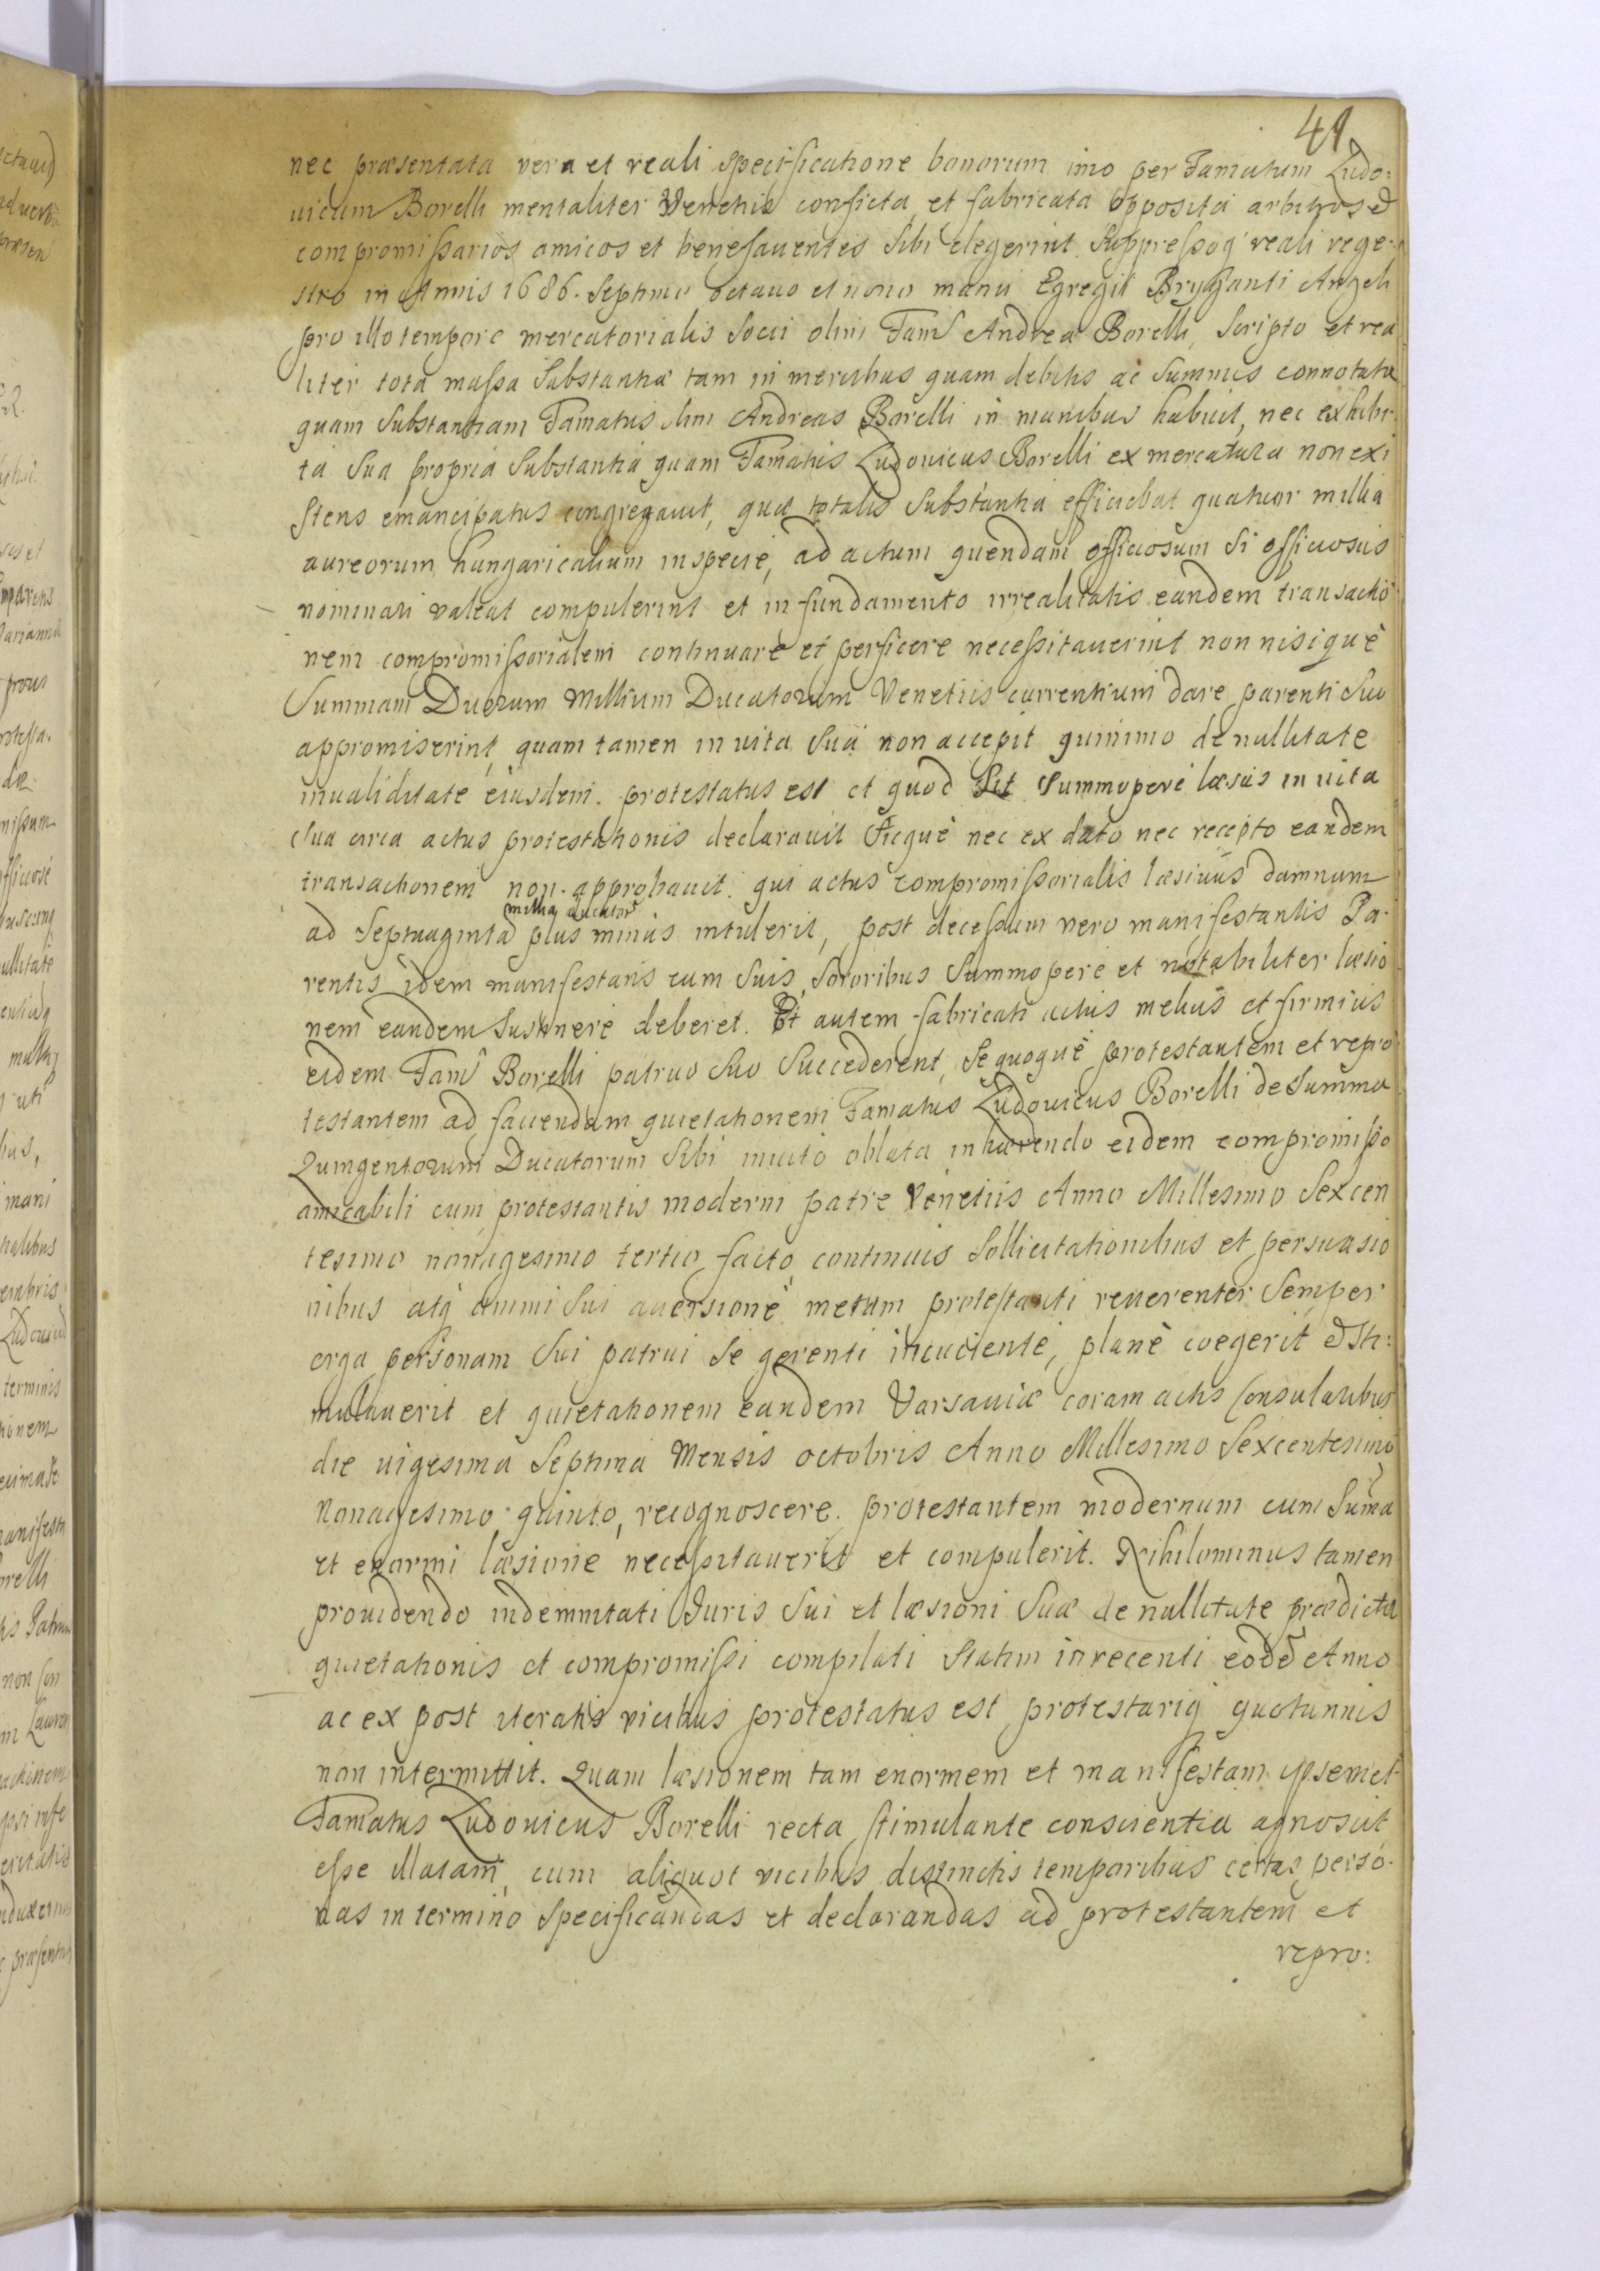 41
nec præsentata vera et reali specificatione bonorum imo per Famatum Ludo:
uicum Borelli mentaliter Venetiis conficta et fabricata opposita arbitros et
compromissarios amicos et benefauentes sibi elegerint. Suppressoq reali rege-
stro in Annis 1686. septimo octauo et nono manu Egregii Bryganti Angeli
pro illo tempore mercatorialis socii olim Fam Andreæ Borelli, scripto et rea
liter tota massa substantiæ tam in mercibus quam debitis ac summis connotata
quam substantiam Famatus olim Andreas Borelli in manibus habuit, nec exhibi-
ta sua propria substantia quam Famatus Ludouicus Borelli ex mercatura non exi
stens emancipatus congregauit, quæ totalis substantia efficiebat quatuor millia
aureorum hungaricalium in specie, ad actum quendam officiosum si officiosus
nominari valeat compulerint et in fundamento irrealitatis eandem transactio
nem compromissorialem continuare et perficere necessitauerint non nisi què
Summam Duorum Millium Ducatorum Venetiis currentium dare parenti suo
appromiserint, quam tamen in uita sua non accepit quinimo de nullitate
inualiditate eiusdem protestatus est et quod sit summopere læsus in uita
sua circa actus protestationis declarauit sicquè nec ex dato nec recepto eandem
transactionem non approbauit. qui actus compromissorialis læsiuus damnum
millia ducator
ad septuaginta plus minus intulerit, post decessum vero manifestantis Pa-
rentis idem manifestans cum suis sororibus summopere et notabiliter læsio
nem eandem sustinere deberet. Ut autem fabricati actus melius et firmius
eidem Fam Borelli patruo suo succederent, se quoquè protestantem et repro
testantem ad faciendam quietationem Famatus Ludouicus Borelli de summa
Quingentorum Ducatorum sibi inuito oblata inhærendo eidem compromisso
amicabili cum protestantis moderni patre Venetiis Anno Millesimo sexcen
tesimo nonagesimo tertio facto continuis sollicitationibus et persuasio
nibus atq animi sui auersione metum protestanti reuerenter semper
erga personam sui patrui se gerenti incutiente, planè coegerit et sti:
mulauerit et quietationem eandem Varsauiæ coram actis Consularibus
die uigesima septima Mensis octobris Anno Millesimo sexcentesimo
Nonagesimo quinto, recognoscere protestantem modernum cum suma
et enormi læsione necessitauerit et compulerit. Nihilominus tamen
prouidendo indemnitati Iuris sui et læsioni suæ de nullitate prædictæ
quietationis et compromissi compilati statim in recenti eode Anno
ac ex post iteratis vicibus protestatus est protestariq quotannis
non intermittit. Quam læsionem tam enormem et manifestam ipsemet
Famatus Ludouicus Borelli recta stimulante conscientia agnoscit
esse illatam, cum aliquot vicibus distinctis temporibus certas perso-
nas in termino specificandas et declarandas ad protestantem et
repro: